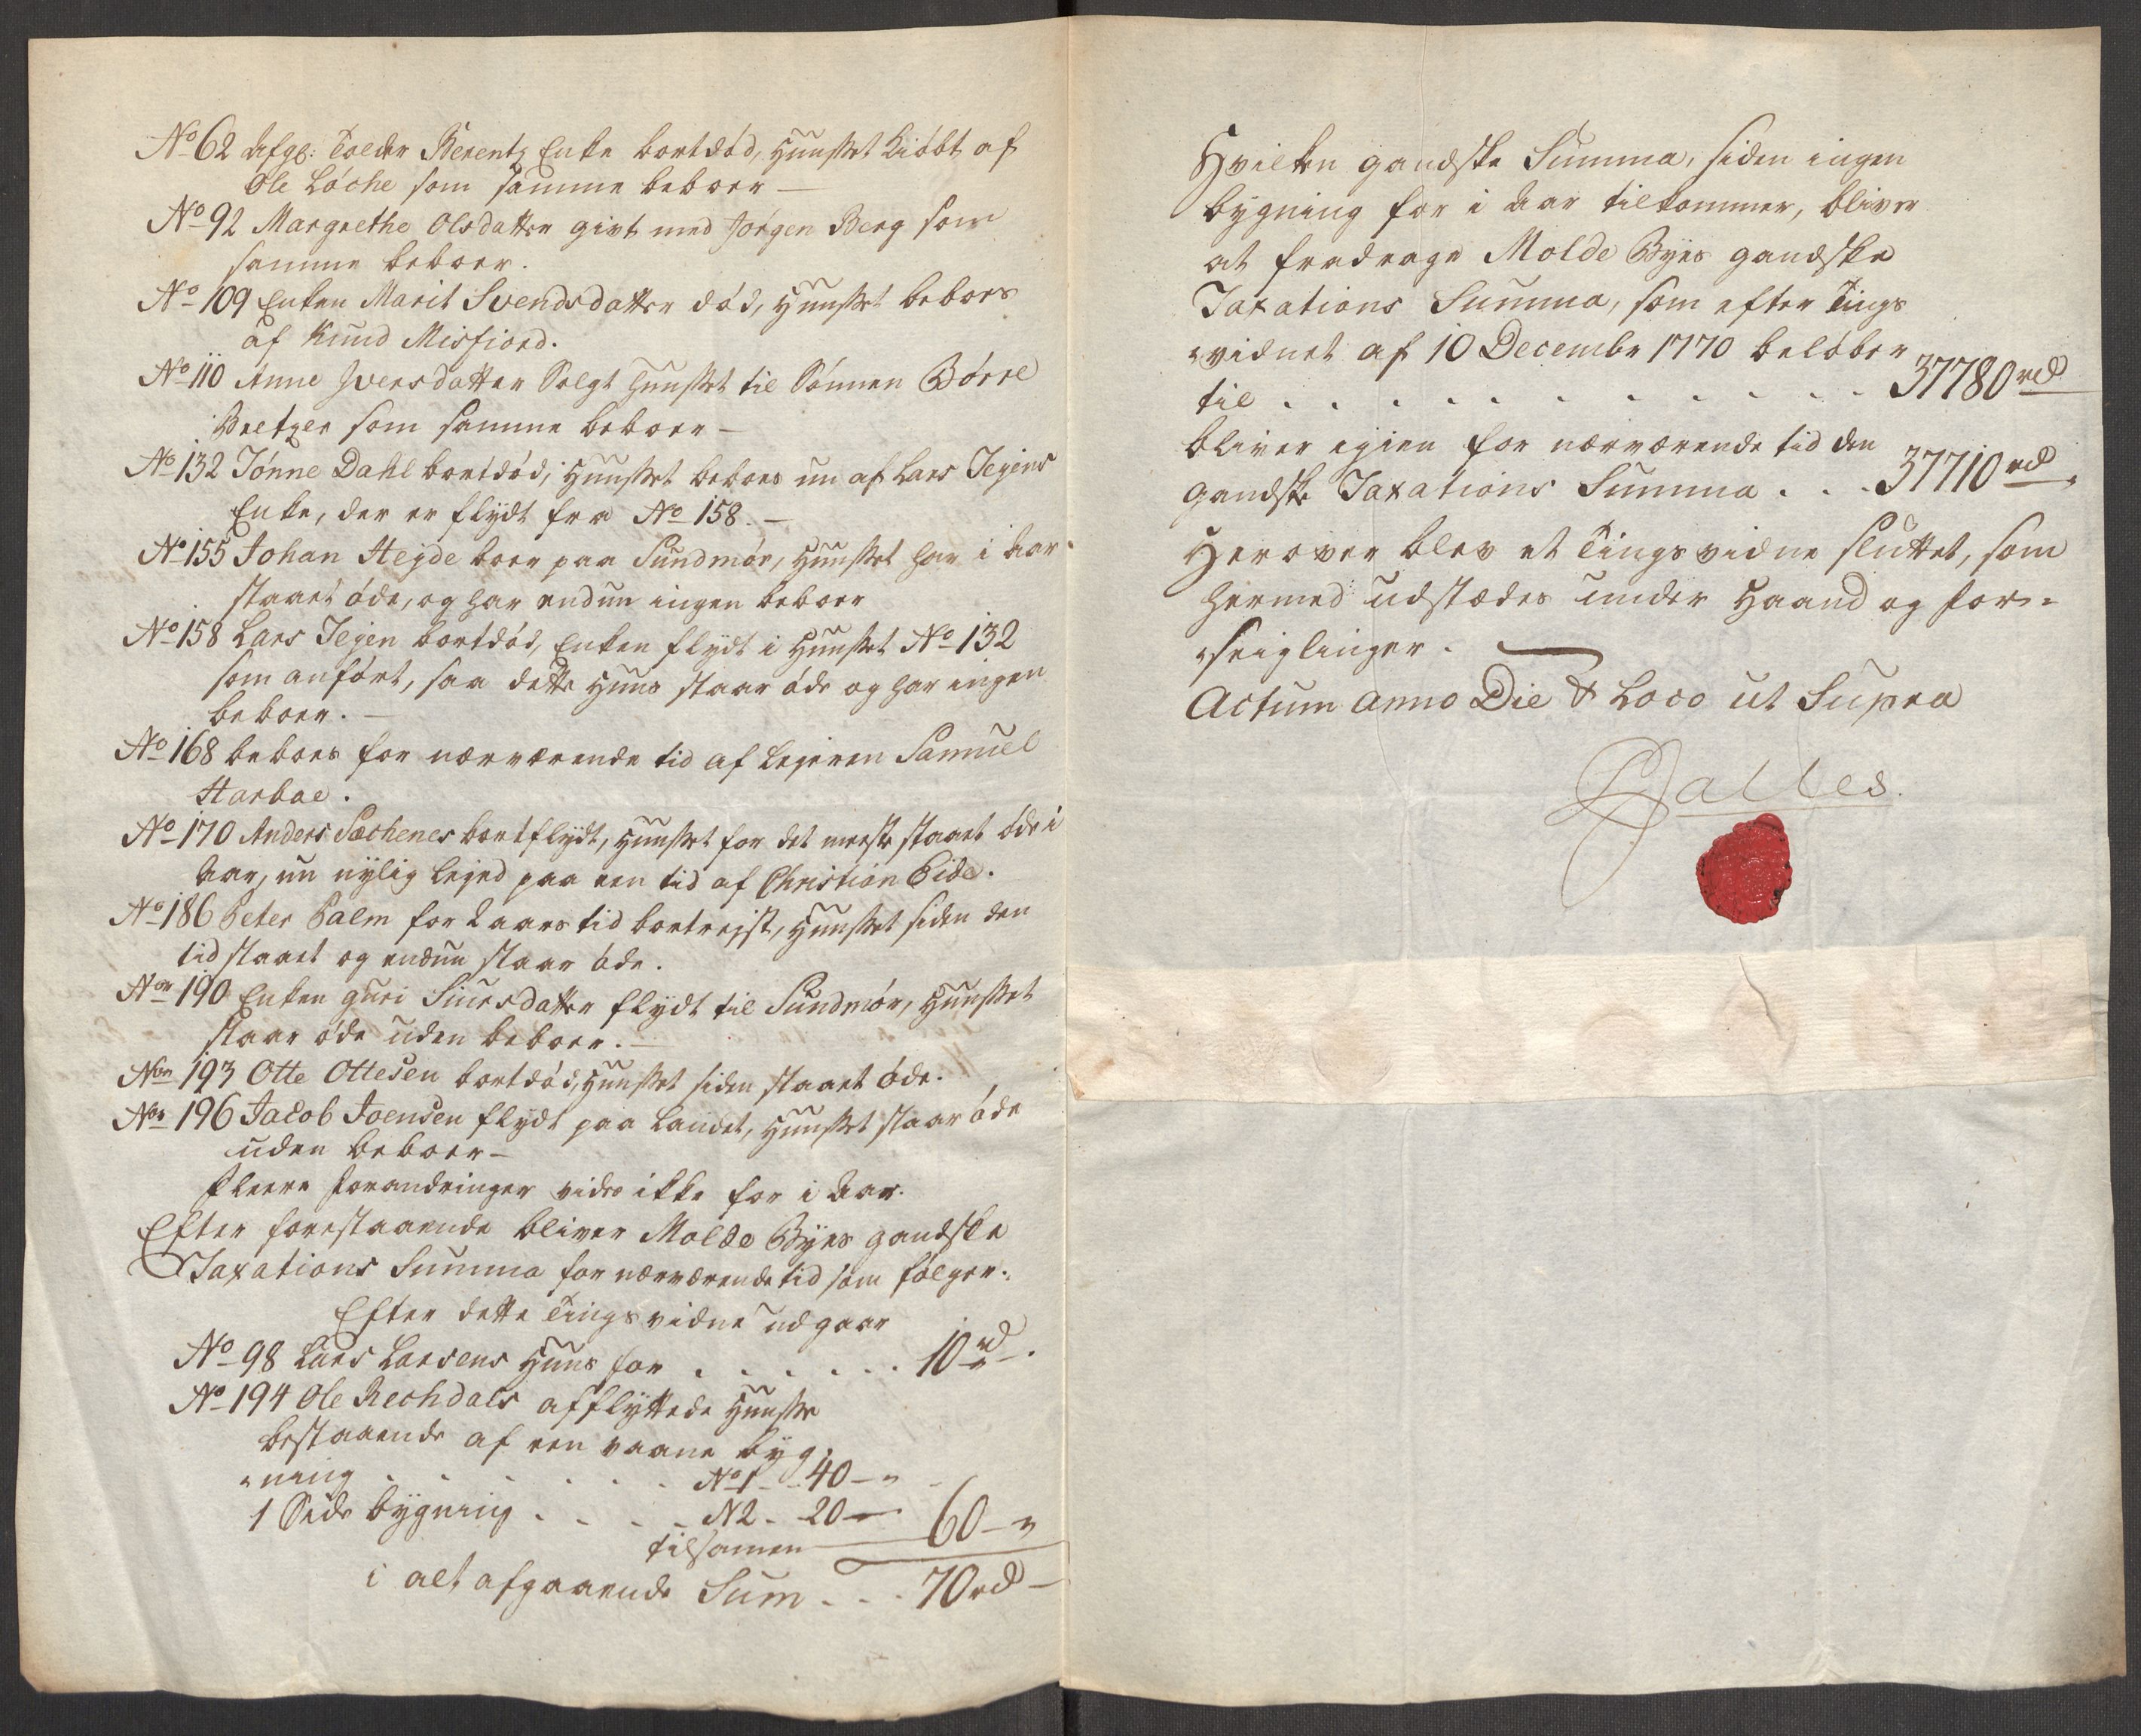 No 62 Afg: Toeder Berentz Enke bortdød, Huusset Kiøbt af
Ole Løche som samme beboer –
No 92 Margrethe Olsdatter givt med Jørgen Berg som
samme beboer.
No 109 Enken Marit Svendsdatter død, Huusset beboes
af Knud Misfiord.
No 110 Anne Iversdatter Solgt huusset til Sønnen Børre
Bretzer som samme beboer –
No 132 Tønne Dahl bortdød, Huusset beboes nu af Lars Tejens
Enke, der er flydt fra No 158. –
No 155 Johan Heyde boer paa Sundmør, Huusset har i Aar
staaet øde, og har endnu ingen beboer
No 158 Lars Tejen bortdød, Enken flydt i Huusset No 132
som anført, saa dette Huus staar øde og har ingen
beboer. –
No 168 beboes for nærværende tid af Lejeren Samuel
Harboe.
No 170 Anders Sæchenes bortflydt, Huusset for det meeste staaet øde i
Aar, nu nylig lejed paa een tid af Christian Eide.
No 186 Peter Palm for 2 aars tid bortrejst, Huusset siden den
tid staaet og endnu staar øde.
Nor 190 Enken Guri Siursdatter flydt til Sundmør, Huusset
staar øde uden beboer. –
Nor 193 Otte Ottesen bortdød, Huusset siden staaet øde.
Nor 196 Jacob Joensen flydt paa Landet, Huusset staar øde
uden beboer –
fleere forandringer vides ikke for i Aar.
Efter forestaaende bliver Molde Byes gandske
Taxations Summa for nærværende tid som følger.
Efter dette Tings vidne udgaar
No 98 Lars Larsens Huus for . . . . . . 10 rd – .
No 194 Ole Rechdals afflyttede Huusse
bestaaende af een vaane byg
„ning . . . . . . No 1 - 40 – „
1 Side bygning . . . . N 2 - 20 –
tilsamen 60 – „
i alt afgaaende Sum . . . 70 rd –
Hvilken gandske Summa, siden ingen
bygning for i Aar tilkommer, bliver
at fradrage Molde Byes gandske
Taxations Summa, som efter Tings
„vidnet af 10 Decembr 1770 beløber
til . . . . . . . . . . . 37780 rd
bliver igien for nærværende tid den
gandske Taxations Summa . . . 37710 rd.
Herover blev et Tings vidne sluttet, som
hermed udstædes under Haand og for-
„seiglinger.
Actum anno Die & Loco ut Supra
Dalles.